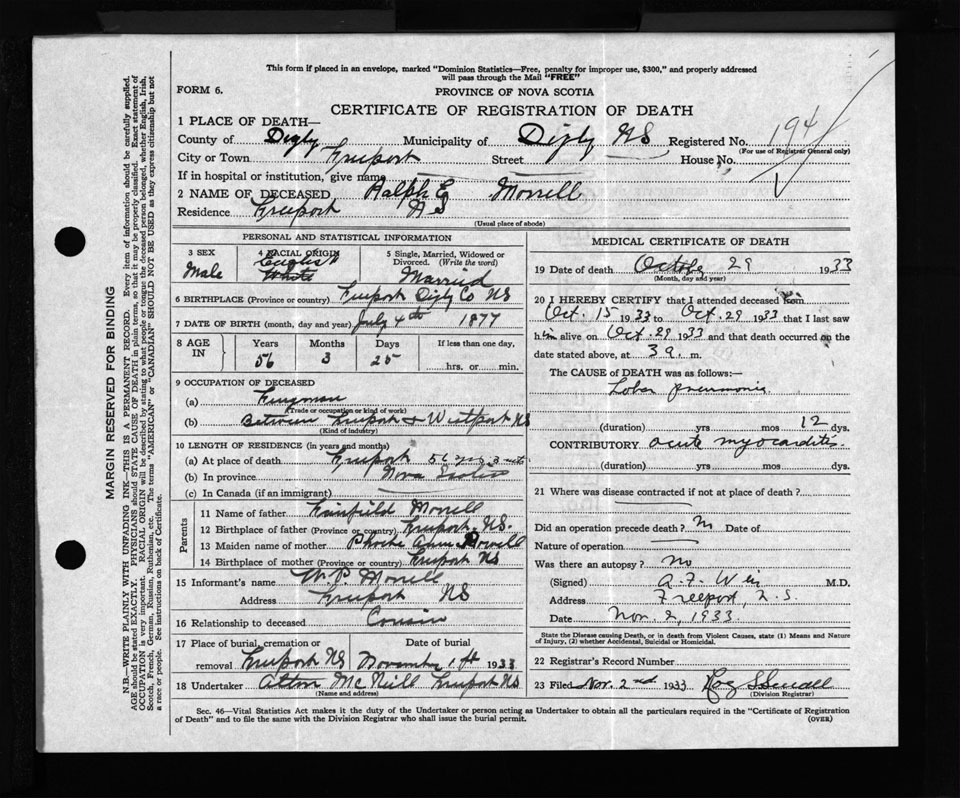 This form if placed in an envelope, marked "Dominion Statistics—Free, penalty for improper use, $300," and properly addressed
will pass through the Mail "FREE"
FORM 6.
PROVINCE OF NOVA SCOTIA
CERTIFICATE OF REGISTRATION OF DEATH
1 PLACE OF DEATH—
County of Digby Municipality of Digby NS Registered No. 194
(For use of Registrar General only)
City or Town Freeport Street House No.
If in hospital or institution, give name
2 NAME OF DECEASED Ralph E Morrell
Residence Freeport NS
(Usual place of abode)
PERSONAL AND STATISTICAL INFORMATION
3 SEX Male
4 RACIAL ORIGIN English White
5 Single, Married, Widowed or Divorced. (Write the word) Married
6 BIRTHPLACE (Province or country) Freeport Digby Co NS
7 DATE OF BIRTH (month, day and year) July 4th 1877
8 AGE IN Years Months Days If less than one day,
56 3 25 hrs. or min.
9 OCCUPATION OF DECEASED
(a) Ferryman
(Trade or occupation or kind of work)
(b) Between Freeport & Westport NS
(Kind of industry)
10 LENGTH OF RESIDENCE (in years and months)
(a) At place of death Freeport 56 yrs 3 mts
(b) In province Nova Scotia
(c) In Canada (if an immigrant)
Parents
11 Name of father Morrell
12 Birthplace of father (Province or country) Freeport NS.
13 Maiden name of mother Phoebe Ann
14 Birthplace of mother (Province or country) Freeport NS
15 Informant's name W. P. Morrell
Address Freeport NS
16 Relationship to deceased Cousin
17 Place of burial, cremation or Date of burial
removal Freeport NS November 1st 1933
18 Undertaker Alton McNeill Freeport NS
(Name and address)
MEDICAL CERTIFICATE OF DEATH
19 Date of death October 29 1933
(Month, day and year)
20 I HEREBY CERTIFY that I attended deceased from
Oct. 15 1933 to Oct. 29 1933 that I last saw
him alive on Oct. 29 1933 and that death occurred on the
date stated above, at 3 a. m.
The CAUSE of DEATH was as follows:—
Lobar pneumonia
(duration) yrs mos 12 dys.
CONTRIBUTORY acute myocarditis.
(duration) yrs mos dys.
21 Where was disease contracted if not at place of death?
Did an operation precede death? No Date of
Nature of operation
Was there an autopsy? No
(Signed) A. F. Weir M.D.
Address Freeport, N.S.
Date Nov. 2, 1933.
State the Disease causing Death, or in death from Violent Causes, state (1) Means and Nature
of Injury, (2) whether Accidental, Suicidal or Homicidal.
22 Registrar's Record Number
23 Filed Nov. 2nd 1933
(Division Registrar)
Sec. 46—Vital Statistics Act makes it the duty of the Undertaker or person acting as Undertaker to obtain all the particulars required in the "Certificate of Registration
of Death" and to file the same with the Division Registrar who shall issue the burial permit.
(OVER)
MARGIN RESERVED FOR BINDING
N.B.—WRITE PLAINLY WITH UNFADING INK—THIS IS A PERMANENT RECORD. Every item of information should be carefully supplied.
AGE should be stated EXACTLY. PHYSICIANS should STATE CAUSE OF DEATH in plain terms, so that it may be properly classified. Exact statement of
OCCUPATION is very important. RACIAL ORIGIN will be described by stating to what people or tongue the deceased person belonged, whether English, Irish,
Scotch, French, German, Russian, Ruthenian, etc. The terms "AMERICAN" or "CANADIAN" SHOULD NOT BE USED as they express citizenship but not
a race or people. See instructions on back of Certificate.